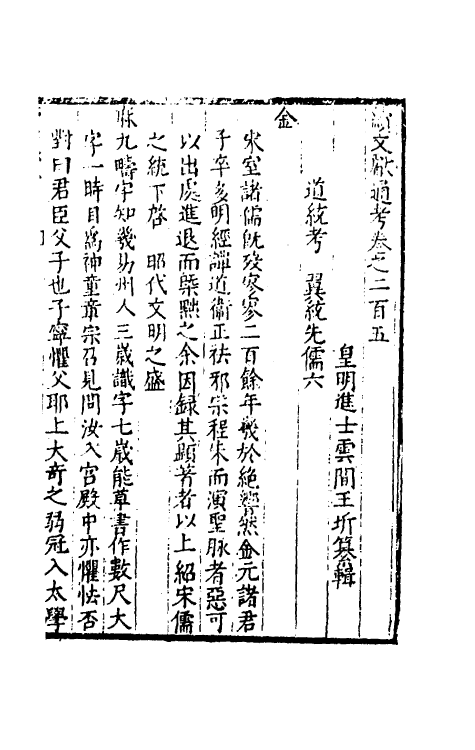 續文獻通考卷之二百五
皇明進士雲間王圻纂輯
道統考　翼統先儒六
金
宋室諸儒旣歿寥寥二百餘年幾於絶響然金元諸君
子卒多明經譚道衞正祛邪宗程朱而演聖脉者惡可
以出處進退而槩黜之余因録其顯著者以上紹宋儒
之統下啓　昭代文明之盛
麻九疇字知幾易州人三歲識字七歲能草書作數尺大
字一時目爲神童章宗召見問汝入宫殿中亦懼怯否
對曰君臣父子也子寧懼父耶上大奇之弱冠入太學